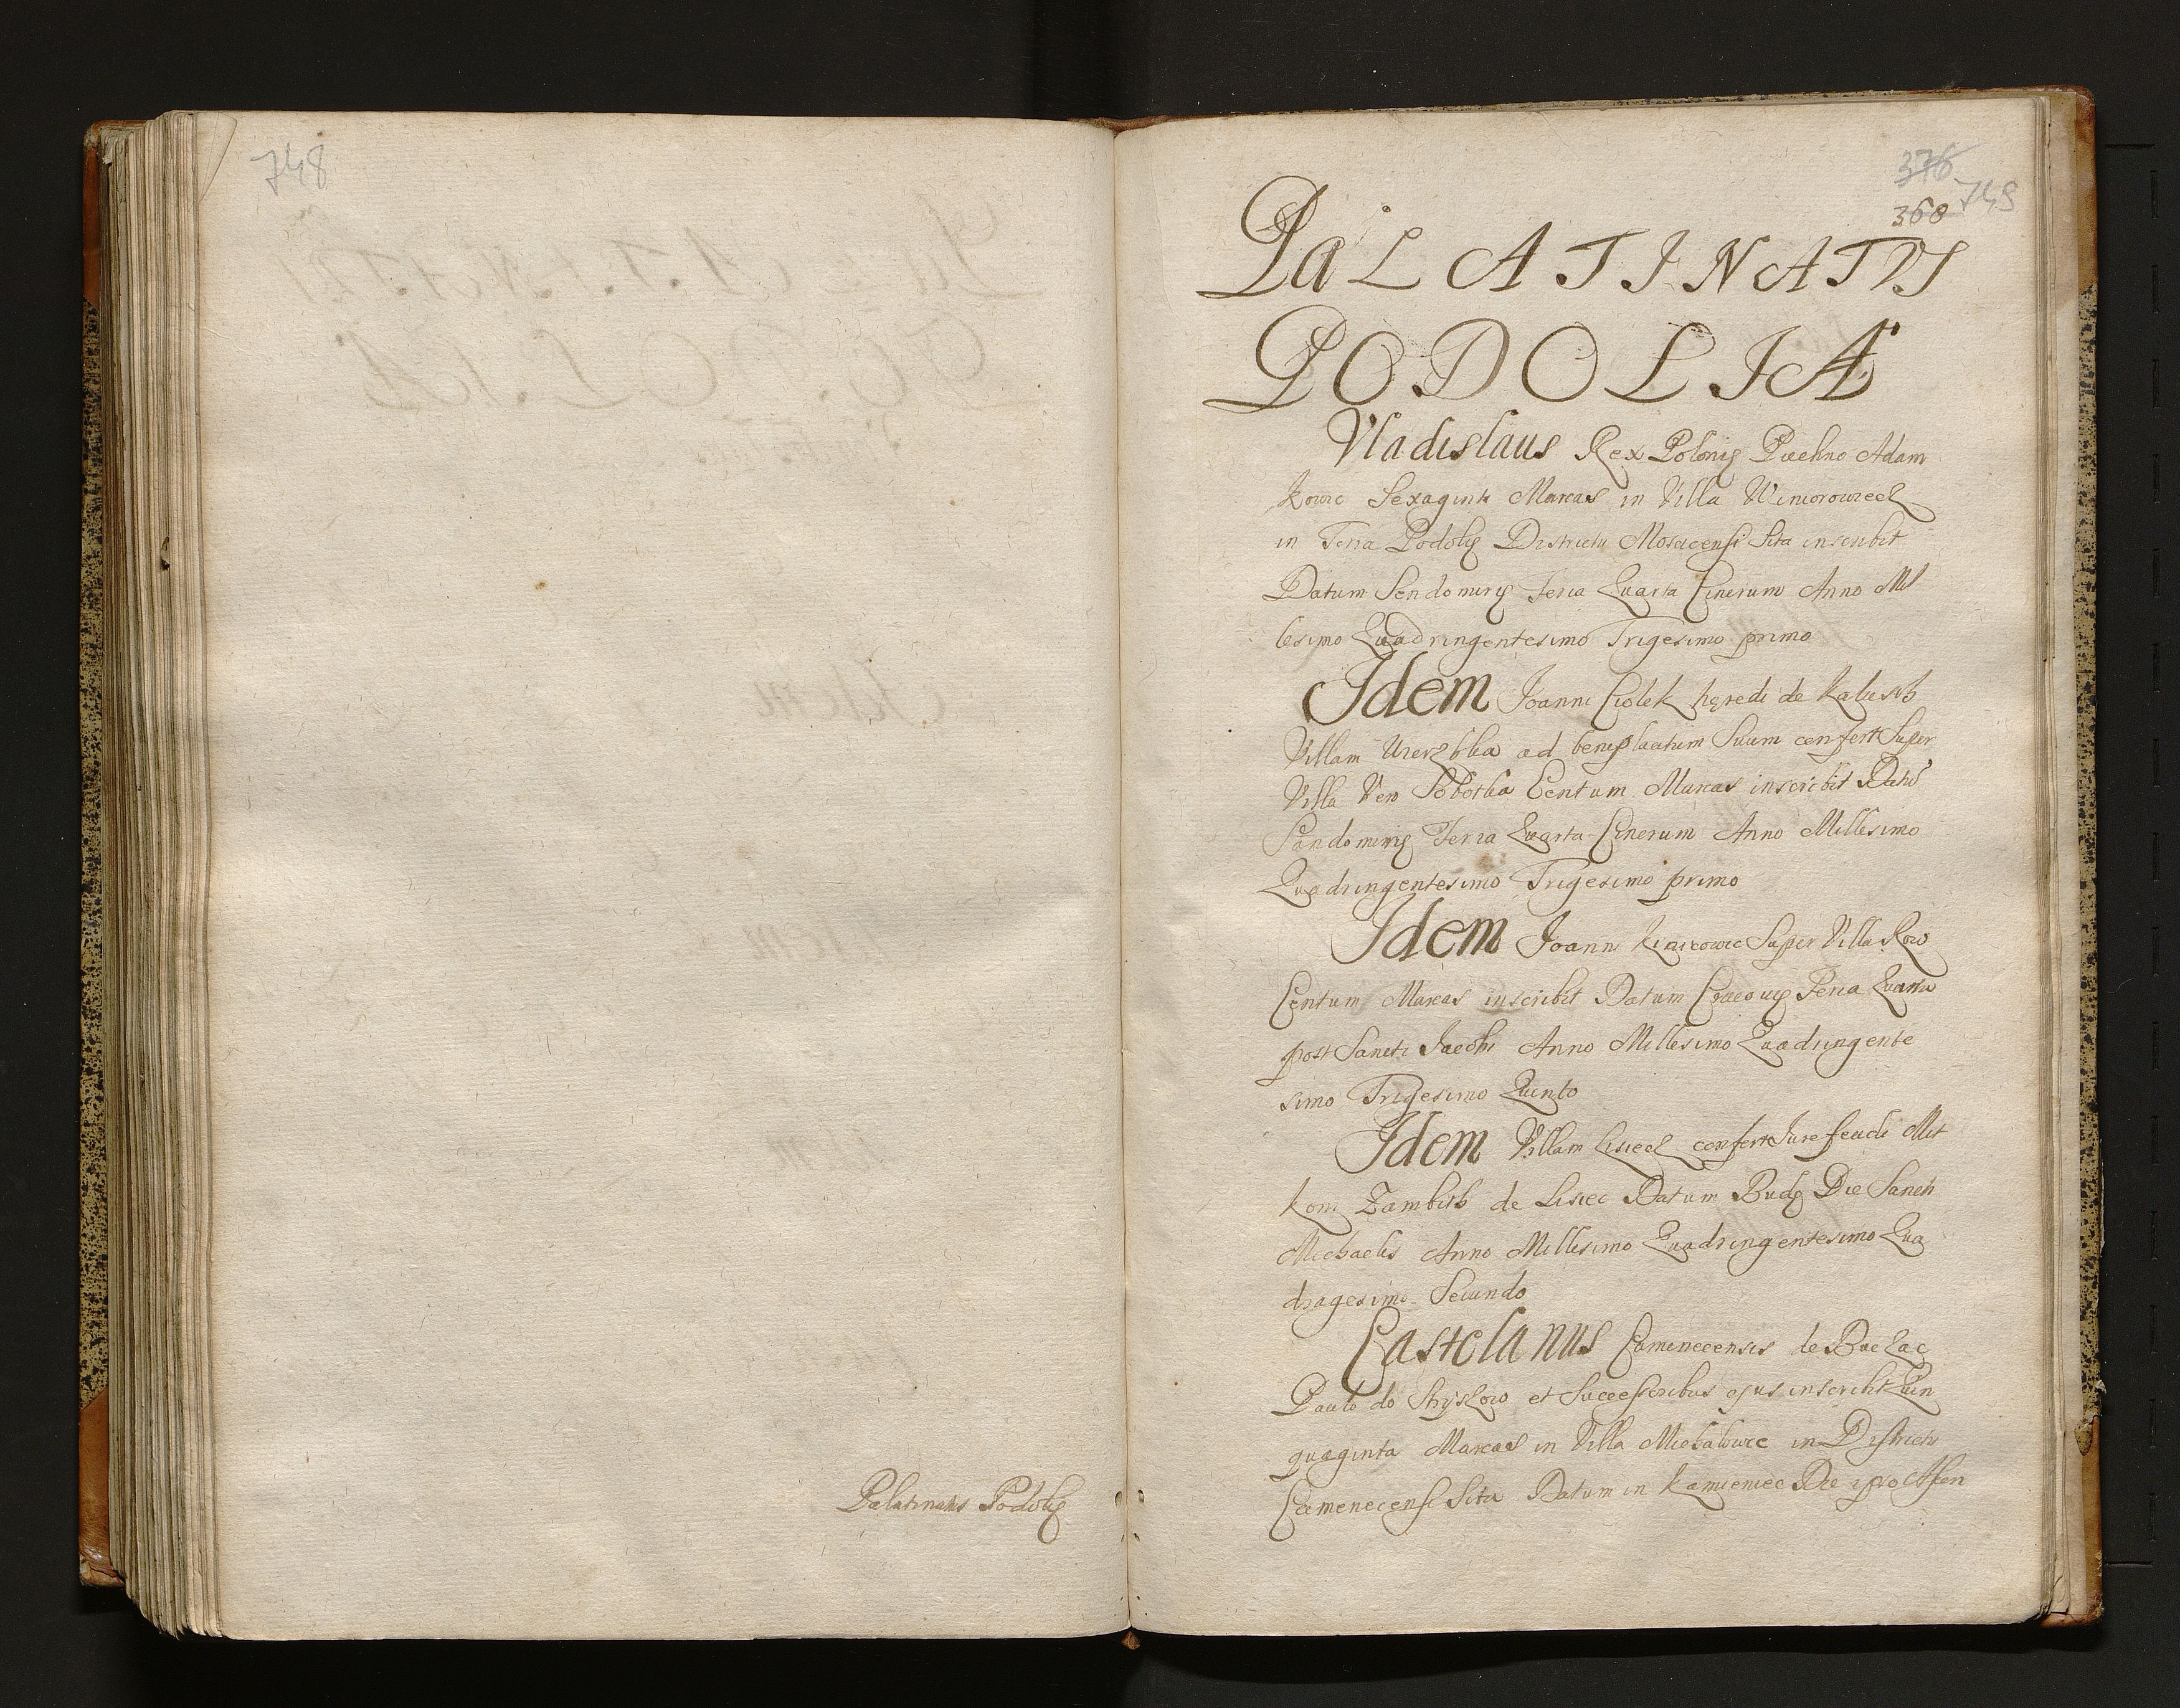 748
Palatinatus Podolię
376
749
360
PaLATINATVS
PODOLIÆ
Vladislaus Rex Polonię Adam
kowic Sexaginta Marcas in Villa
in Terra Podolię Districtu Sita inscribit
Datum Sendomirię Feria Quarta Cinerum Anno Mil
lesimo Quadringentesimo Trigesimo primo
Idem Joanni Ciolek hęredi de
Villam ad beneplacitum Suum confert Super
Villa Vero Centum Marcas inscribit Datū
Sandomirię Feria Quarta Cinerum Anno Millesimo
Quadringentesimo Trigesimo primo
Idem Joann Super Villa Row
Centum Marcas inscribit Datum Cracovię Feria Quarta
post Sancti Jacobi Anno Millesimo Quadringente
simo Trigesimo Quinto
Idem Villam confert Jure feudi Mit
koni de Lisiec Datum Budę Die Sancti
Michaelis Anno Millesimo Quadringentesimo Qua
dragesimo Secundo
Castelanus Camenecensis de Buczacz
Paulo do et Successoribus ejus inscribit Quin
quaginta Marcas in Villa in Districtu
Camenecensi Sita Datum in Kamieniec Die ipso Ascen